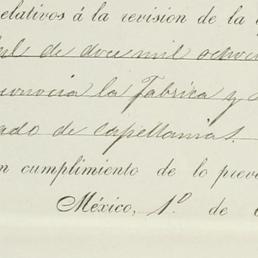 relativos á la revision de la
de doce mil ocho
la Fabrica y
ado de Capellanias.
n cumplimiento de lo preve
México, 1º de